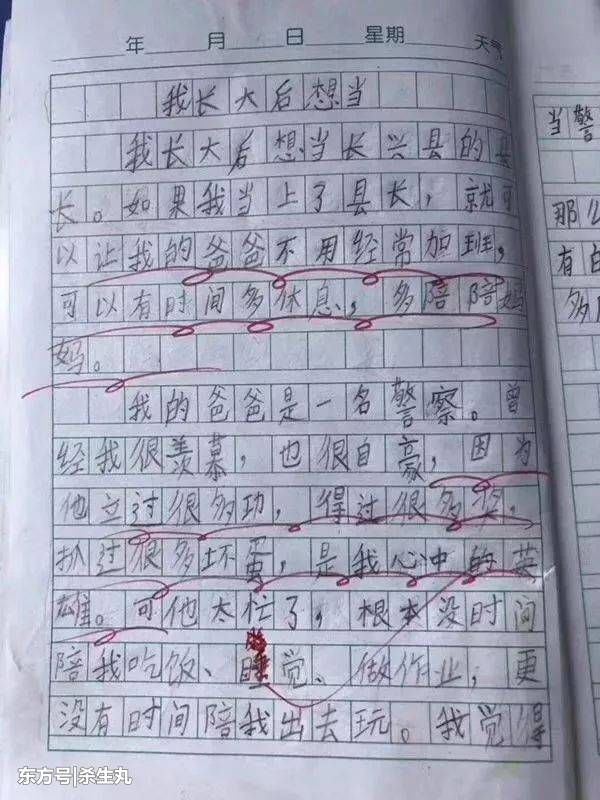 年 月 日 星期 天气
我长大后想当
我长大后想当长兴县的县
长。如果我当上了县长,就可
以让我的爸爸不用经常加班,
可以有时间多休息,多陪陪妈
妈。
我的爸爸是一名警察。曾
经我很羡慕,也很自豪,因为
他立过很多功,得过很多奖,
抓过很多坏蛋,是我心中的英
雄。可他太忙了,根本没时间
陪我吃饭、睡觉、做作业,更
没有时间陪我出去玩。我觉得
当警
那么
有白
多陪
东方号|杀生丸